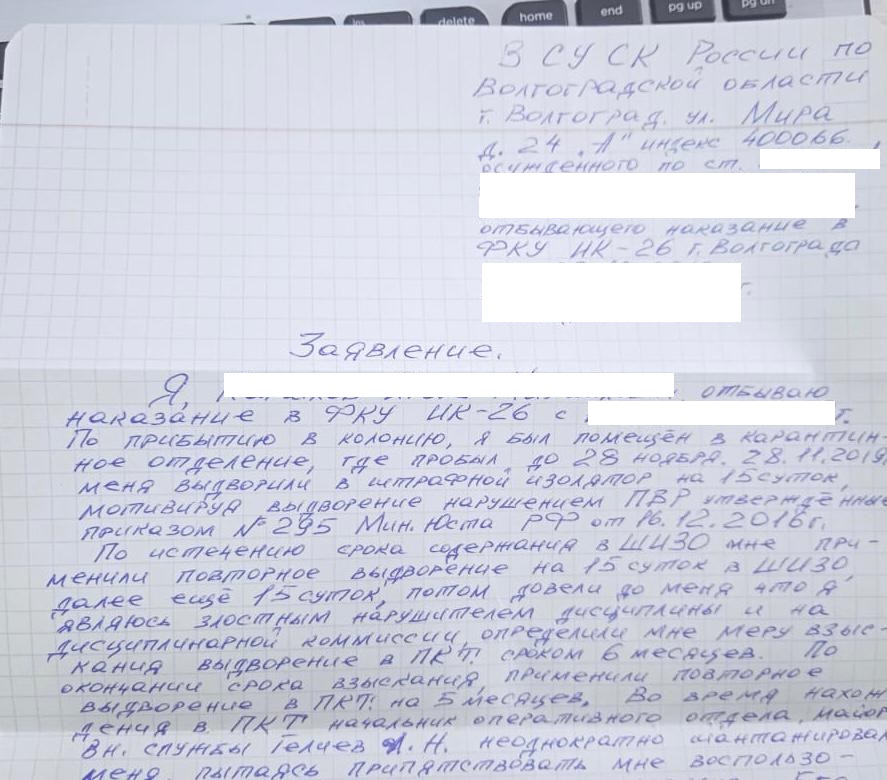 delete
home
end
pg up
В СУ СК России по
Волгоградской области
г. Волгоград. ул. Мира
д. 24 „А" индекс 400066.
осужденного по ст.
отбывающего наказание в
ФКУ ИК-26 г. Волгограда
г.
Заявление.
Я, отбываю
наказание в ФКУ ИК-26 с г.
По прибытию в колонию, я был помещён в карантин-
ное отделение, где пробыл до 28 ноября. 28.11.2019
меня выдворили в штрафной изолятор на 15 суток,
мотивируя выдворение нарушением ПВР утверждённые
приказом № 295 Мин. Юста РФ от 16.12.2016г.
По истечению срока содержания в ШИЗО мне при-
менили повторное выдворение на 15 суток в ШИЗО,
далее ещё 15 суток, потом довели до меня что я
являюсь злостным нарушителем дисциплины и на
дисциплинарной коммиссии, определили мне меру взыс-
кания выдворение в ПКТ. сроком 6 месяцев. По
окончании срока взыскания, применили повторное
выдворение в ПКТ. на 5 месяцев. Во время нахож
дения в ПКТ начальник оперативного отдела, майор
вн. службы Геличев А. Н. неоднократно шантажировал
меня, пытаясь припятствовать мне воспользо-